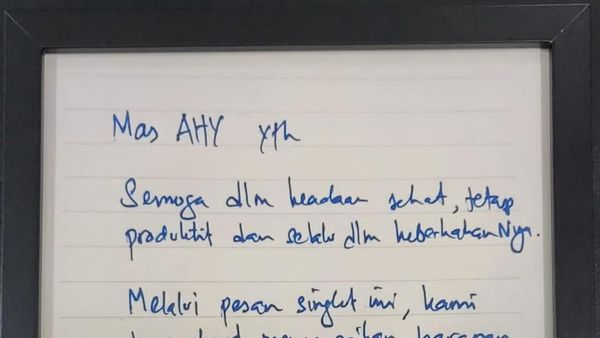 Mas AHY Yth
Semoga dlm keadaan sehat, tetap
produktif dan selalu dlm keberkahanNya.
Melalui pesan singkat ini, kami